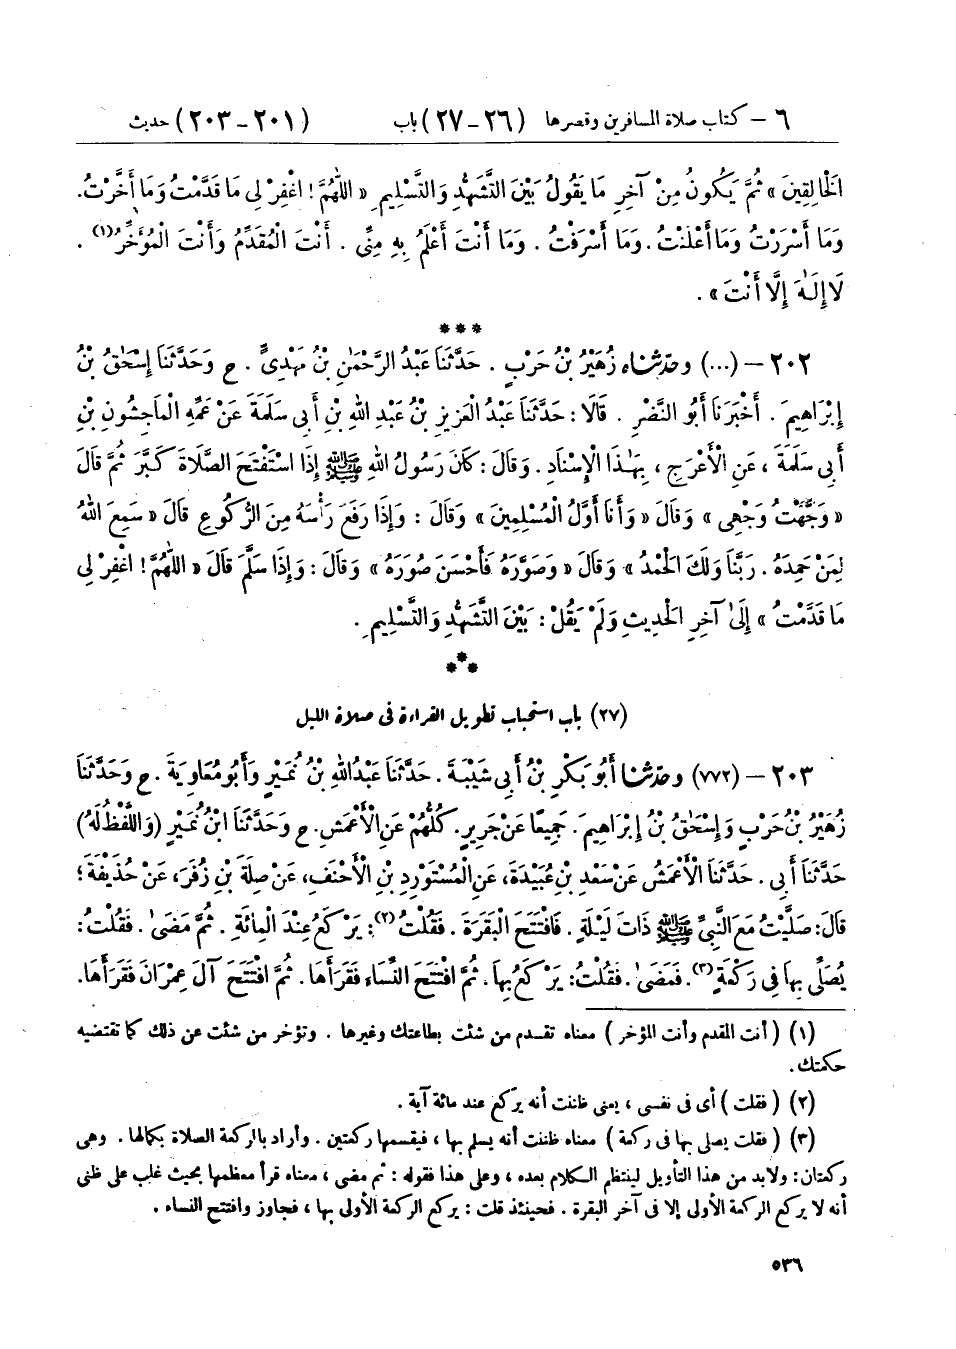 ٦ – كتاب صلاة المسافرين وقصرها (٢٦ – ٢٧) باب (٢٠١ – ٢٠٣) حديث
الْخَالِقِينَ» ثُمَّ يَكُونُ مِنْ آخِرِ مَا يَقُولُ بَيْنَ التَّشَهُّدِ وَالتَّسْلِيمِ «اللّٰهُمَّ! اغْفِرْ لِي مَا قَدَّمْتُ وَمَا أَخَّرْتُ.
وَمَا أَسْرَرْتُ وَمَا أَعْلَنْتُ. وَمَا أَسْرَفْتُ. وَمَا أَنْتَ أَعْلَمُ بِهِ مِنِّى. أَنْتَ الْمُقَدِّمُ وَأَنْتَ الْمُؤَخِّرُ(١).
لَا إِلَـٰهَ إِلَّا أَنْتَ».
***
٢٠٢ – (...) وحدّثناه زُهَيْرُ بْنُ حَرْبٍ. حَدَّثَنَا عَبْدُ الرَّحْمَٰنِ بْنُ مَهْدِىٍّ. ح وَحَدَّثَنَا إِسْحَٰقُ بْنُ
إِبْرَاهِيمَ. أَخْبَرَنَا أَبُو النَّضْرِ. قَالَا: حَدَّثَنَا عَبْدُ الْعَزِيزِ بْنُ عَبْدِ اللهِ بْنِ أَبِى سَلَمَةَ عَنْ عَمِّهِ الْمَاجِشُونِ بْنِ
أَبِى سَلَمَةَ، عَنِ الْأَعْرَجِ، بِهَـٰذَا الْإِسْنَادِ. وَقَالَ: كَانَ رَسُولُ اللهِ ﷺ إِذَا اسْتَفْتَحَ الصَّلَاةَ كَبَّرَ ثُمَّ قَالَ
«وَجَّهْتُ وَجْهِى» وَقَالَ «وَأَنَا أَوَّلُ الْمُسْلِمِينَ» وَقَالَ: وَإِذَا رَفَعَ رَأْسَهُ مِنَ الرُّكُوعِ قَالَ «سَمِعَ اللهُ
لِمَنْ حَمِدَهُ. رَبَّنَا وَلَكَ الْحَمْدُ» وَقَالَ «وَصَوَّرَهُ فَأَحْسَنَ صُوَرَهُ» وَقَالَ: وَإِذَا سَلَّمَ قَالَ «اللّٰهُمَّ! اغْفِرْ لِى
مَا قَدَّمْتُ» إِلَىٰ آخِرِ الْحَدِيثِ وَلَمْ يَقُلْ: بَيْنَ التَّشَهُّدِ وَالتَّسْلِيمِ.
***
(٢٧) باب استحباب تطويل القراءة فى صلاة الليل
٢٠٣ – (٧٧٢) وحدّثنا أَبُو بَكْرِ بْنُ أَبِى شَيْبَةَ. حَدَّثَنَا عَبْدُ اللهِ بْنُ نُمَيْرٍ وَأَبُو مُعَاوِيَةَ. ح وَحَدَّثَنَا
زُهَيْرُ بْنُ حَرْبٍ وَإِسْحَٰقُ بْنُ إِبْرَاهِيمَ. جَمِيعًا عَنْ جَرِيرٍ. كُلُّهُمْ عَنِ الْأَعْمَشِ. ح وَحَدَّثَنَا ابْنُ نُمَيْرٍ (وَاللَّفْظُ لَهُ)
حَدَّثَنَا أَبِى. حَدَّثَنَا الْأَعْمَشُ عَنْ سَعْدِ بْنِ عُبَيْدَةَ، عَنِ الْمُسْتَوْرِدِ بْنِ الْأَحْنَفِ، عَنْ صِلَةَ بْنِ زُفَرَ، عَنْ حُذَيْفَةَ؛
قَالَ: صَلَّيْتُ مَعَ النَّبِىِّ ﷺ ذَاتَ لَيْلَةٍ. فَافْتَتَحَ الْبَقَرَةَ. فَقُلْتُ(٢): يَرْكَعُ عِنْدَ الْمِائَةِ. ثُمَّ مَضَىٰ. فَقُلْتُ:
يُصَلِّى بِهَا فِى رَكْعَةٍ(٣). فَمَضَىٰ. فَقُلْتُ: يَرْكَعُ بِهَا. ثُمَّ افْتَتَحَ النِّسَاءَ فَقَرَأَهَا. ثُمَّ افْتَتَحَ آلَ عِمْرَانَ فَقَرَأَهَا.
(١) (أنت المقدم وأنت المؤخر) معناه تقدم من شئت بطاعتك وغيرها. وتؤخر من شئت عن ذلك كما تقتضيه
حكمتك.
(٢) (فقلت) أى فى نفسى، يعنى ظننت أنه يركع عند مائة آية.
(٣) (فقلت يصلى بها فى ركعة) معناه ظننت أنه يسلم بها، فيقسمها ركعتين. وأراد بالركعة الصلاة بكمالها. وهى
ركعتان: ولابد من هذا التأويل لينتظم الكلام بعده، وعلى هذا فقوله: ثم مضى، معناه قرأ معظمها بحيث غلب على ظنى
أنه لا يركع الركعة الأولى إلا فى آخر البقرة. فحينئذ قلت: يركع الركعة الأولى بها، فجاوز وافتتح النساء.
٥٣٦